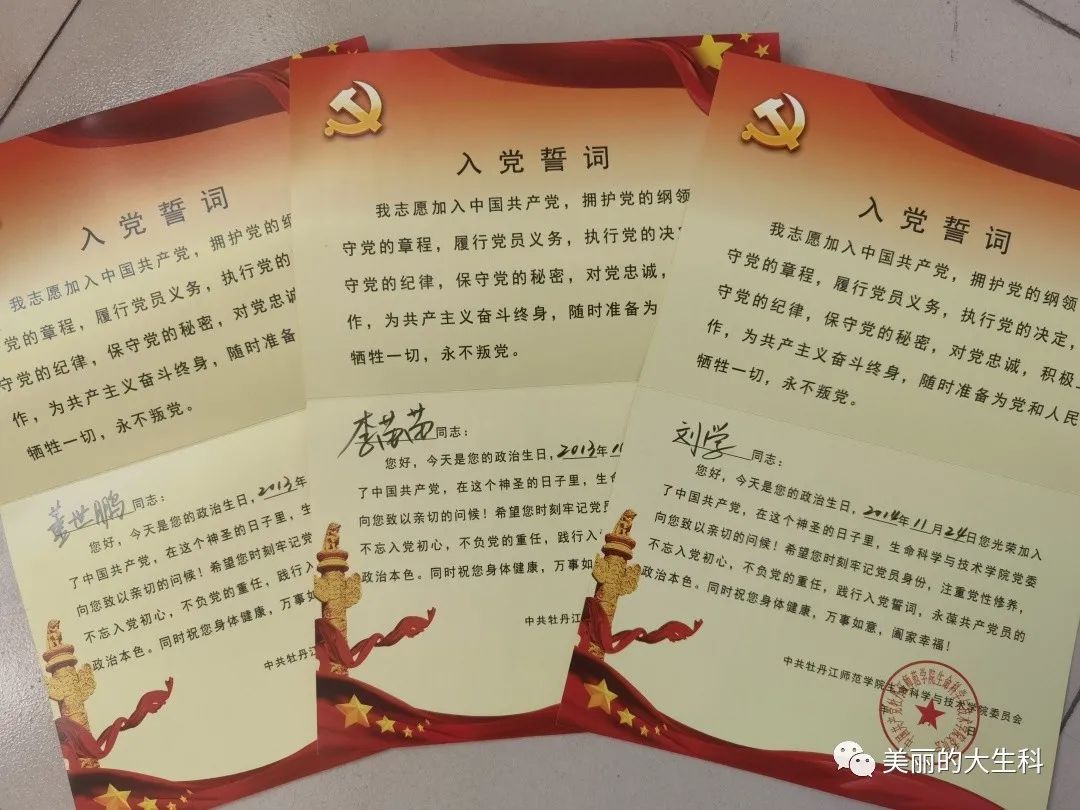 入党誓词
我志愿加入中国共产党，拥护党的纲
党的章程，履行党员义务，执行党的
守党的纪律，保守党的秘密，对党忠诚
作，为共产主义奋斗终身，随时准备
牺牲一切，永不叛党。
董世鹏同志：
您好，今天是您的政治生日，2013年
了中国共产党，在这个神圣的日子里，生
向您致以亲切的问候！希望您时刻牢记
不忘入党初心，不负党的重任，践行入
政治本色。同时祝您身体健康，万事如
中共牡丹江
入党誓词
我志愿加入中国共产党，拥护党的纲领
守党的章程，履行党员义务，执行党的决定
守党的纪律，保守党的秘密，对党忠诚，
作，为共产主义奋斗终身，随时准备为
牺牲一切，永不叛党。
同志：
您好，今天是您的政治生日，2013年
了中国共产党，在这个神圣的日子里，生命
向您致以亲切的问候！希望您时刻牢记党
不忘入党初心，不负党的重任，践行入
政治本色。同时祝您身体健康，万事如
中共牡丹江
入党誓词
我志愿加入中国共产党，拥护党的纲领
守党的章程，履行党员义务，执行党的决定，
守党的纪律，保守党的秘密，对党忠诚，积极
作，为共产主义奋斗终身，随时准备为党和人民
牺牲一切，永不叛党。
刘学同志：
您好，今天是您的政治生日，2014年11月24日您光荣加入
了中国共产党，在这个神圣的日子里，生命科学与技术学院党委
向您致以亲切的问候！希望您时刻牢记党员身份，注重党性修养，
不忘入党初心，不负党的重任，践行入党誓词，永葆共产党员的
政治本色。同时祝您身体健康，万事如意，阖家幸福！
中共牡丹江师范学院生命科学与技术学院委员会
日
美丽的大生科